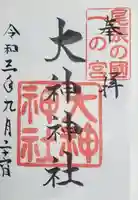 奉拝
尾張の國
一の宮
大神神社
大神
神社
令和三年九月二十二日